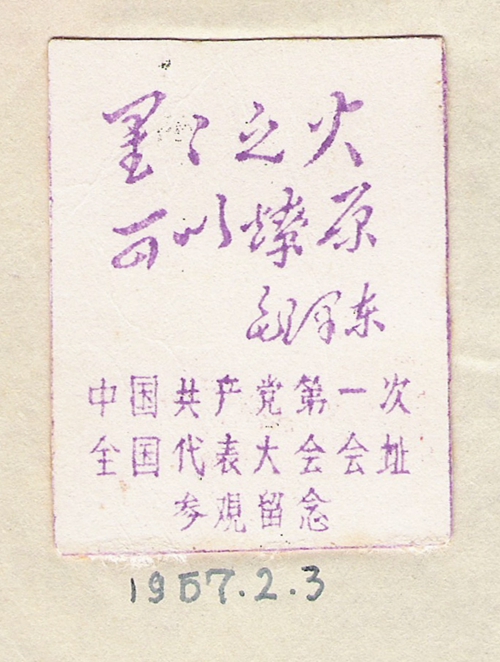 星々之火
可以燎原
毛泽东
中国共产党第一次
全国代表大会会址
参观留念
1957.2.3